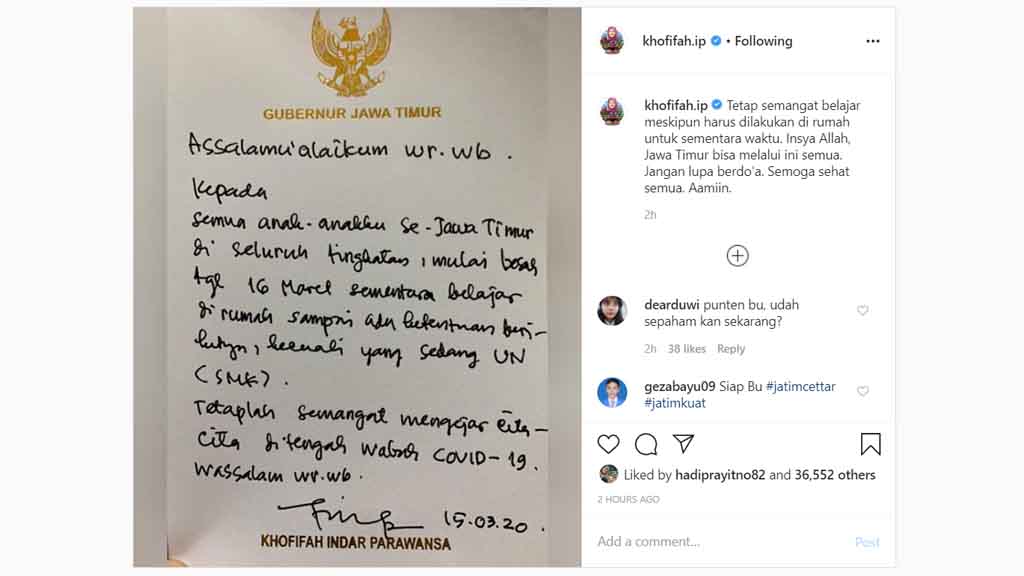 GUBERNUR JAWA TIMUR
Assalamu'alaikum wr.wb.
Kepada
Semua anak-anakku se-Jawa Timur
di seluruh tingkatan, mulai besok
tgl 16 Maret sementara belajar
di rumah sampai ada ketentuan beri-
kutnya, kecuali yang sedang UN
(SMK).
Tetaplah semangat mengejar cita-
cita ditengah wabah COVID-19.
Wassalam wr.wb.
15.03.20.
KHOFIFAH INDAR PARAWANSA
khofifah.ip • Following
khofifah.ip Tetap semangat belajar
meskipun harus dilakukan di rumah
untuk sementara waktu. Insya Allah,
Jawa Timur bisa melalui ini semua.
Jangan lupa berdo'a. Semoga sehat
semua. Aamiin.
2h
dearduwi punten bu, udah
sepaham kan sekarang?
2h 38 likes Reply
gezabayu09 Siap Bu #jatimcettar
#jatimkuat
Liked by hadiprayitno82 and 36,552 others
2 HOURS AGO
Add a comment... Post